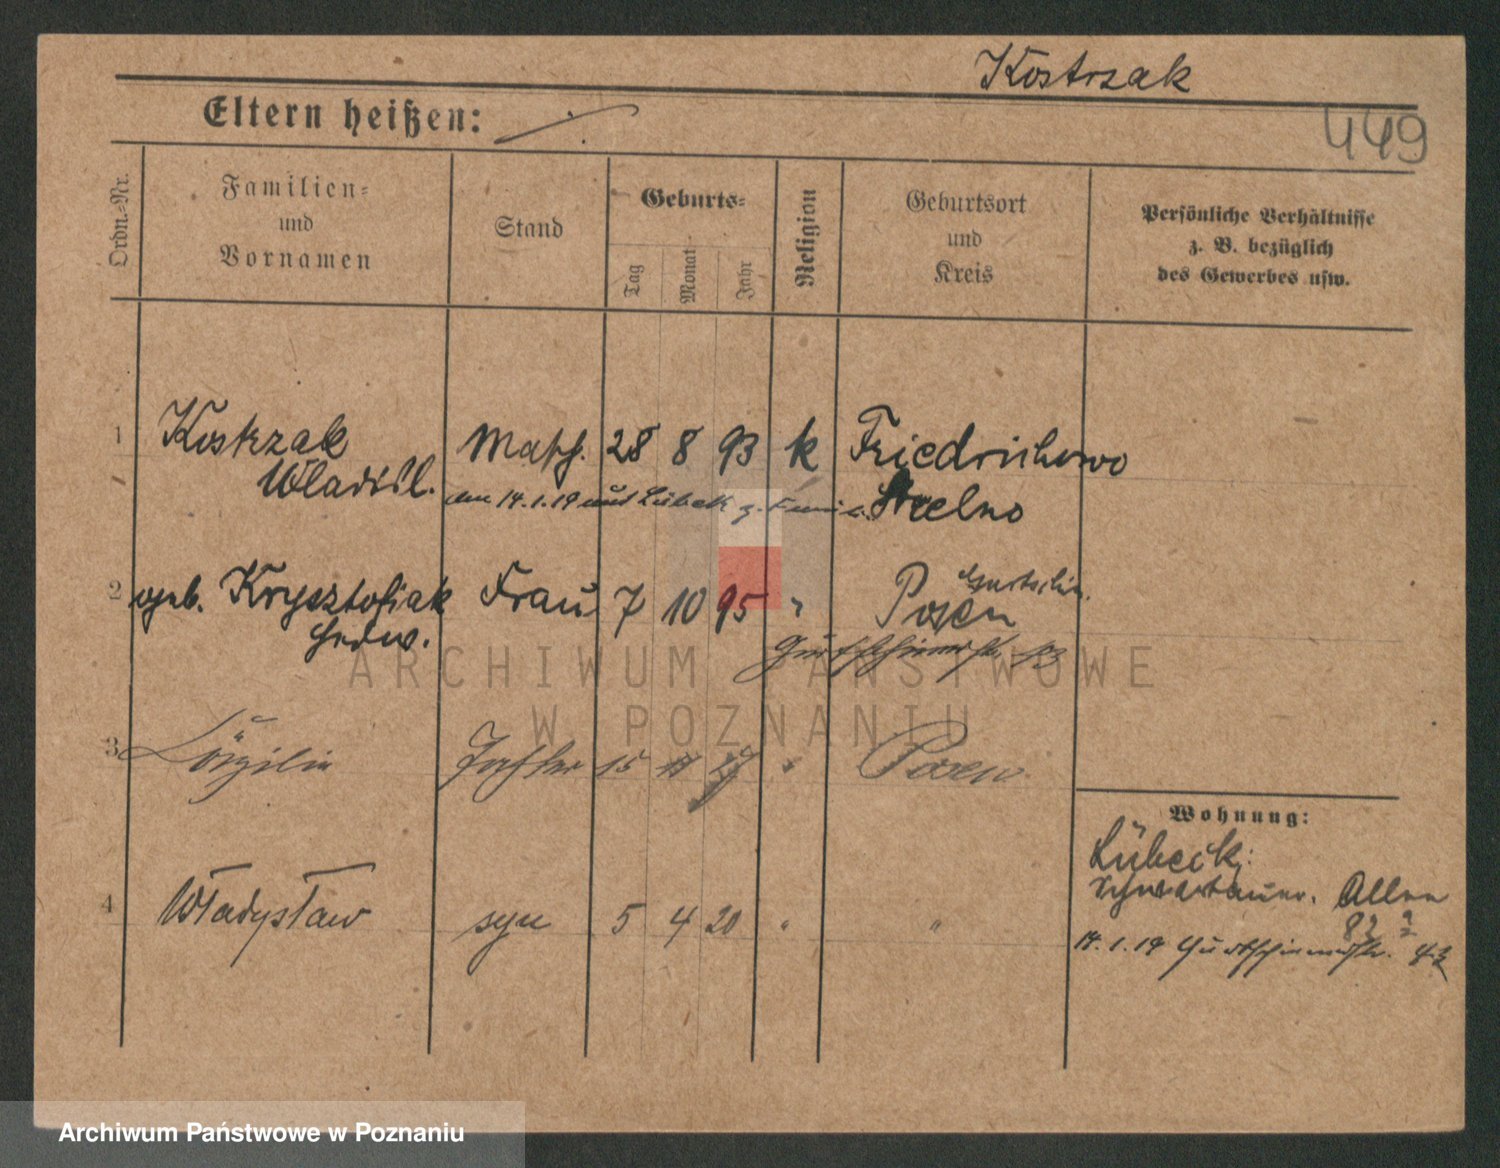 Kostrzak
Eltern heißen:
449
Ordn.-Nr.
Familien-
und
Vornamen
Stand
Geburts-
Tag
Monat
Jahr
Religion
Geburtsort
und
Kreis
Persönliche Verhältnisse
z. B. bezüglich
des Gewerbes usw.
1 Kostrzak Masch. 28 8 93 k Friedrichowo
Wladisl. Strelno
am 14.1.19 aus Lübeck z.
2 geb. Krysztofiak Frau 7 10 95 " Posen
Hedw.
3 Tochter 15 " Posen
4 Władysław syn 5 4 20 " "
Wohnung:
Lübeck
Schwartauer. Allee
14.1.19 Gurtschinerstr.
ARCHIWUM PAŃSTWOWE
W POZNANIU
Archiwum Państwowe w Poznaniu